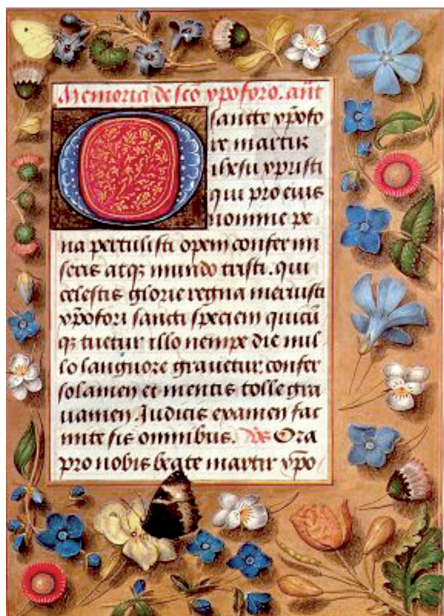 Memoria de scō xpoforo. añt
O sancte xp̄ofo
re martir
ihesu xpristi
qui pro eius
nomine pe
na pertulisti opem confer mi
seris atqz mundo tristi. qui
celestis glorie regna meruisti
xp̄ofori sancti speciem quicū
qz tuetur illo nempe die nul
lo languore grauetur: confer
solamen et mentis tolle gra
uamen. Iudicis examen fac
mite sis omnibus. Vs Ora
pro nobis beate martir xp̄o